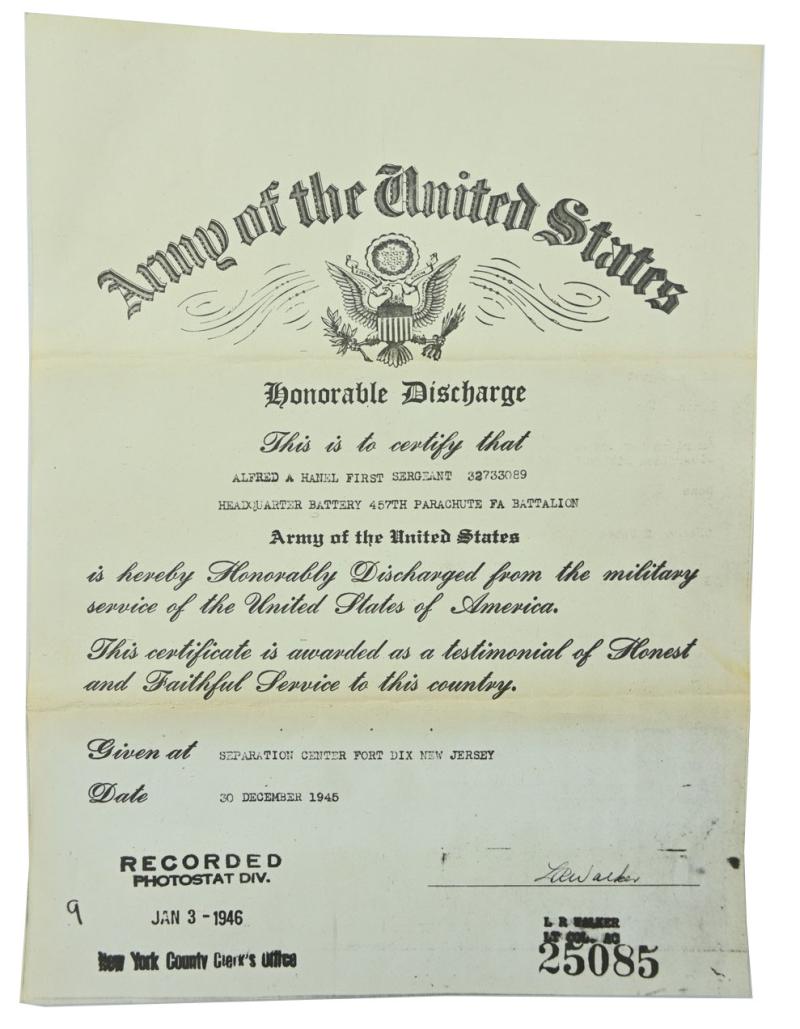 Army of the United States
Honorable Discharge
This is to certify that
ALFRED A HANEL FIRST SERGEANT 32733089
HEADQUARTER BATTERY 457TH PARACHUTE FA BATTALION
Army of the United States
is hereby Honorably Discharged from the military
service of the United States of America.
This certificate is awarded as a testimonial of Honest
and Faithful Service to this country.
Given at SEPARATION CENTER FORT DIX NEW JERSEY
Date 30 DECEMBER 1945
RECORDED
PHOTOSTAT DIV.
9
JAN 3 - 1946
New York County Clerk's Office
L R Walker
L R WALKER
LT COL. AC
25085